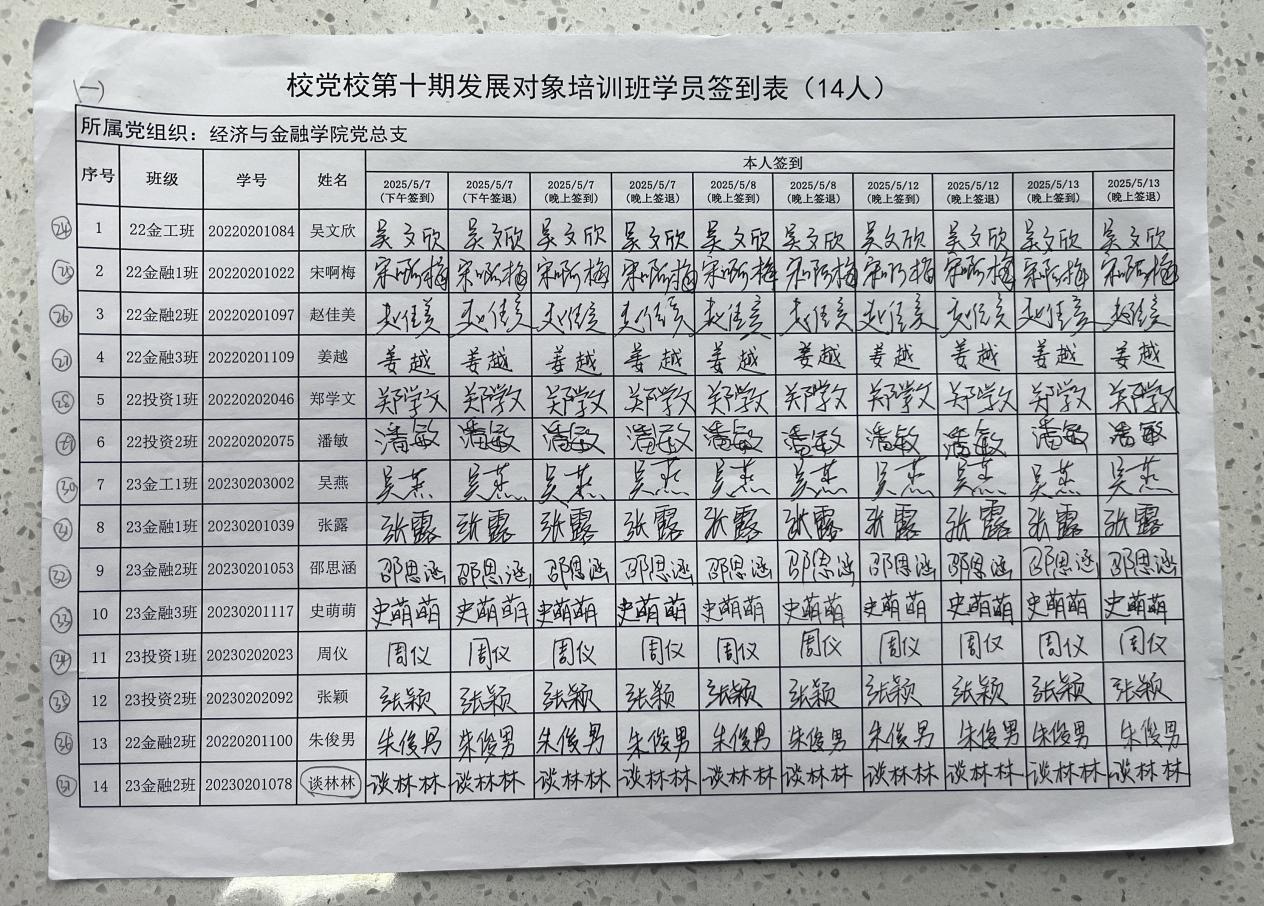 (一)
校党校第十期发展对象培训班学员签到表（14人）
所属党组织：经济与金融学院党总支
序号 班级 学号 姓名 本人签到
2025/5/7 2025/5/7 2025/5/7 2025/5/7 2025/5/8 2025/5/8 2025/5/12 2025/5/12 2025/5/13 2025/5/13
（下午签到） （下午签退） （晚上签到） （晚上签退） （晚上签到） （晚上签退） （晚上签到） （晚上签退） （晚上签到） （晚上签退）
24 1 22金工班 20220201084 吴文欣 吴文欣 吴文欣 吴文欣 吴文欣 吴文欣 吴文欣 吴文欣 吴文欣 吴文欣 吴文欣
25 2 22金融1班 20220201022 宋啊梅 宋啊梅 宋啊梅 宋啊梅 宋啊梅 宋啊梅 宋啊梅 宋啊梅 宋啊梅 宋啊梅 宋啊梅
26 3 22金融2班 20220201097 赵佳美 赵佳美 赵佳美 赵佳美 赵佳美 赵佳美 赵佳美 赵佳美 赵佳美 赵佳美 赵佳美
27 4 22金融3班 20220201109 姜越 姜越 姜越 姜越 姜越 姜越 姜越 姜越 姜越 姜越 姜越
28 5 22投资1班 20220202046 郑学文 郑学文 郑学文 郑学文 郑学文 郑学文 郑学文 郑学文 郑学文 郑学文 郑学文
29 6 22投资2班 20220202075 潘敏 潘敏 潘敏 潘敏 潘敏 潘敏 潘敏 潘敏 潘敏 潘敏 潘敏
30 7 23金工1班 20230203002 吴燕 吴燕 吴燕 吴燕 吴燕 吴燕 吴燕 吴燕 吴燕 吴燕 吴燕
31 8 23金融1班 20230201039 张露 张露 张露 张露 张露 张露 张露 张露 张露 张露 张露
32 9 23金融2班 20230201053 邵思涵 邵思涵 邵思涵 邵思涵 邵思涵 邵思涵 邵思涵 邵思涵 邵思涵 邵思涵 邵思涵
33 10 23金融3班 20230201117 史萌萌 史萌萌 史萌萌 史萌萌 史萌萌 史萌萌 史萌萌 史萌萌 史萌萌 史萌萌 史萌萌
34 11 23投资1班 20230202023 周仪 周仪 周仪 周仪 周仪 周仪 周仪 周仪 周仪 周仪 周仪
35 12 23投资2班 20230202092 张颖 张颖 张颖 张颖 张颖 张颖 张颖 张颖 张颖 张颖 张颖
36 13 22金融2班 20220201100 朱俊男 朱俊男 朱俊男 朱俊男 朱俊男 朱俊男 朱俊男 朱俊男 朱俊男 朱俊男 朱俊男
37 14 23金融2班 20230201078 谈林林 谈林林 谈林林 谈林林 谈林林 谈林林 谈林林 谈林林 谈林林 谈林林 谈林林